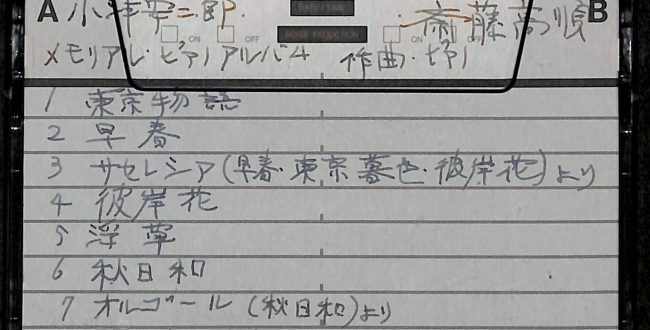 A 小津安二郎 DATE/TIME 斎藤高順 B
ON OFF NOISE REDUCTION ON
メモリアル・ピアノアルバム 作曲・ピアノ
1 東京物語
2 早春
3 サセレシア(早春・東京暮色・彼岸花)より
4 彼岸花
5 浮草
6 秋日和
7 オルゴール (秋日和)より